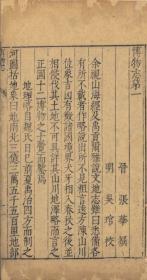 博物志第一
晉 張華 撰
明 吳琯 校
余視山海經及禹貢爾雅說文地志雖曰悉備各
有所不載者作略說出所不見粗言遠方陳山川
位象吉凶有徵諸國境界犬牙相入春秋之後並
相侵伐其土地不可具詳其山川地澤略而言之
正國十二博物之士覽而鑒焉
地理略自魏氏目已前夏禹治四方而制之
河圖括地象曰地南北三億三萬五千五百里地部